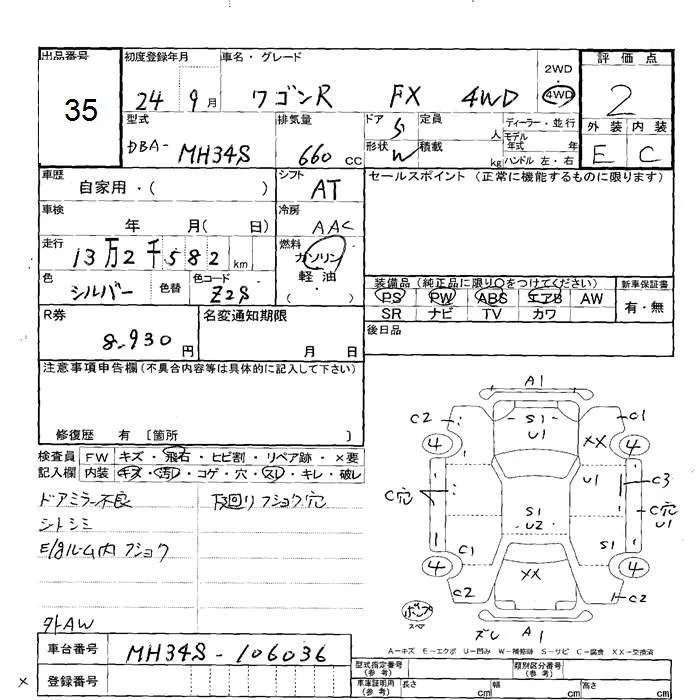 出品番号 初度登録年月 車名・グレード 2WD 評価点
35 24 9月 ワゴンR FX 4WD 4WD 2
型式 排気量 ドア 定員 ディーラー・並行 外装 内装
DBA-MH34S 660 CC 5 人 モデル年式 年 E C
形状 W 積載 kg ハンドル 左・右
車歴 自家用・( ) シフト AT セールスポイント (正常に機能するものに限ります)
車検 年 月( 日) 冷房 AAC
走行 13万2千582 km 燃料 ガソリン
軽油
( )
色 シルバー 色替 色コード Z2S
装備品 (純正品に限り○をつけてください) 新車保証書
PS PW ABS エアB AW 有・無
SR ナビ TV カワ
R券 8,930円 名変通知期限 月 日 後日品
注意事項申告欄(不具合内容等は具体的に記入して下さい)
修復歴 有 〔箇所 〕
検査員 FW キズ・飛石・ヒビ割・リペア跡・×要
記入欄 内装 キズ・汚レ・コゲ・穴・スレ・キレ・破レ
ドアミラー不良 下回りフショク穴
シートシミ
E/gルーム内フショク
外AW
A1
C2 S1 C1
U1
4 XX 4
C穴 U1 C3
S1 C穴
U2 U1
C1 S1
4 XX 4
C2 C2
スペア
A1
A=キズ E=エクボ U=凹み W=補修跡 S=サビ C=腐食 XX=交換済
車台番号 MH34S-106036
型式指定番号(参考) 類別区分番号(参考)
× 登録番号 車庫証明用(参考) 長さ cm 幅 cm 高さ cm